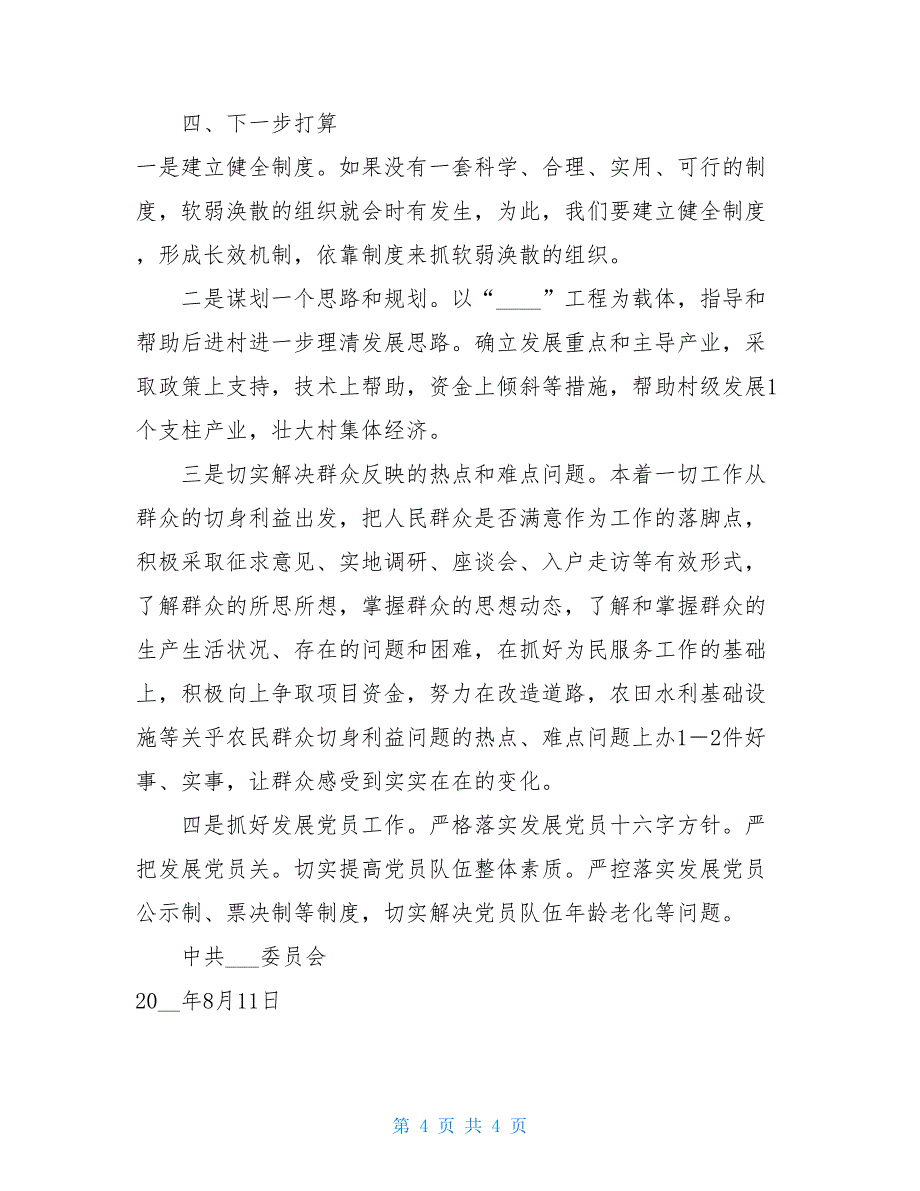 四、下一步打算
一是建立健全制度。如果没有一套科学、合理、实用、可行的制
度，软弱涣散的组织就会时有发生，为此，我们要建立健全制度
，形成长效机制，依靠制度来抓软弱涣散的组织。
二是谋划一个思路和规划。以“____”工程为载体，指导和
帮助后进村进一步理清发展思路。确立发展重点和主导产业，采
取政策上支持，技术上帮助，资金上倾斜等措施，帮助村级发展1
个支柱产业，壮大村集体经济。
三是切实解决群众反映的热点和难点问题。本着一切工作从
群众的切身利益出发，把人民群众是否满意作为工作的落脚点，
积极采取征求意见、实地调研、座谈会、入户走访等有效形式，
了解群众的所思所想，掌握群众的思想动态，了解和掌握群众的
生产生活状况、存在的问题和困难，在抓好为民服务工作的基础
上，积极向上争取项目资金，努力在改造道路，农田水利基础设
施等关乎农民群众切身利益问题的热点、难点问题上办1－2件好
事、实事，让群众感受到实实在在的变化。
四是抓好发展党员工作。严格落实发展党员十六字方针。严
把发展党员关。切实提高党员队伍整体素质。严控落实发展党员
公示制、票决制等制度，切实解决党员队伍年龄老化等问题。
中共___委员会
20__年8月11日
第 4 页 共 4 页